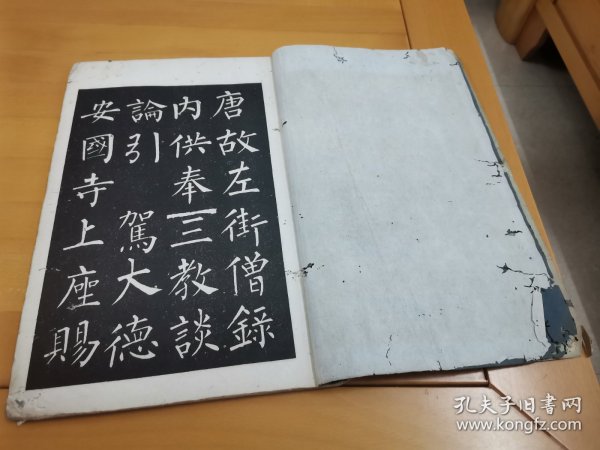 唐故左街僧錄
內供奉三教談
論引駕大德
安國寺上座賜
孔夫子旧书网
www.kongfz.com